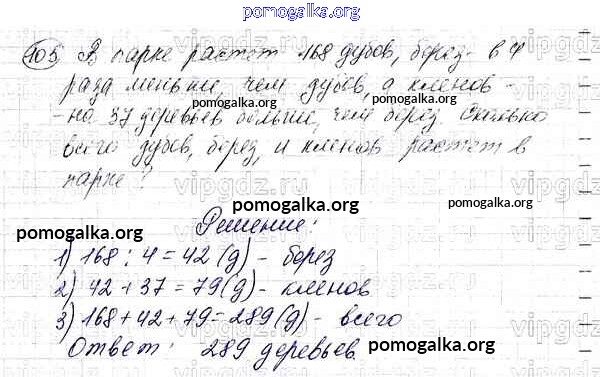 pomogalka.org
105 В парке растет 168 дубов, берез - в 4
раза меньше, чем дубов, а кленов -
- на 37 деревьев больше, чем берез. Сколько
всего дубов, берез, и кленов растет в
парке?
pomogalka.org
pomogalka.org
pomogalka.org
pomogalka.org
pomogalka.org
Решение:
pomogalka.org
1) 168 : 4 = 42 (д) - берез
2) 42 + 37 = 79 (д) - кленов
3) 168 + 42 + 79 = 289 (д) - всего
Ответ: 289 деревьев
pomogalka.org
pomogalka.org
vipgdz.ru
vipgdz.ru